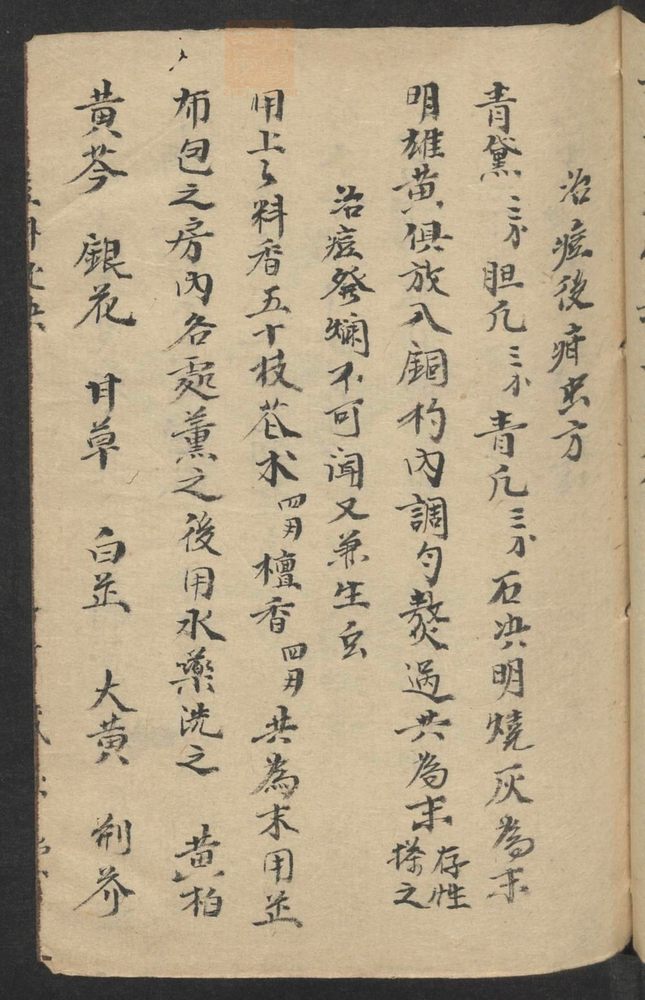 治痘後疳虫方
青黛三分胆凡三分青凡三分石决明燒灰為末
明雄黄俱放入銅杓內調勻熬過共為末存性搽之
治痘發爛不可闻又兼生虫
用上上料香五十枝苍术四両檀香四両共為末用並
布包之房內各處薰之後用水藥洗之 黄柏
黄芩 銀花 甘草 白芷 大黄 荊芥